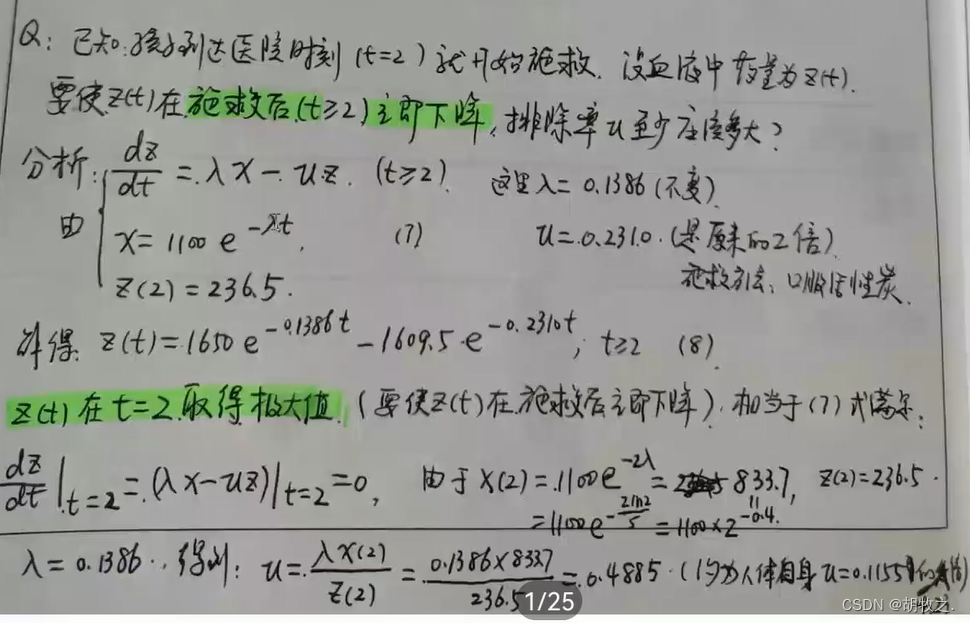 Q: 已知:孩子到达医院时刻(t=2)就开始施救. 设血液中药量为z(t).
要使z(t)在施救后(t≥2)立即下降,排除率u至少应该多大?
分析: dz/dt = λx - uz. (t≥2). 这里λ=0.1386(不变).
由 x=1100e^{-λt}. (7) u=0.2310.(是原来的2倍)
z(2)=236.5. 施救方法:口服活性炭.
解得: z(t)=1650e^{-0.1386t} - 1609.5e^{-0.2310t}; t≥2 (8)
z(t)在t=2取得极大值.(要使z(t)在施救后立即下降).相当于(7)式满足:
dz/dt|_{t=2}=(λx-uz)|_{t=2}=0, 由于x(2)=1100e^{-2λ}=833.7, z(2)=236.5.
=1100e^{-2ln2/5}=1100×2^{-0.4}.
λ=0.1386.. 得到: u=λx(2)/z(2)=0.1386×833.7/236.5=0.4885.(约为人体自身u=0.1155的
1/25
CSDN @胡牧之.